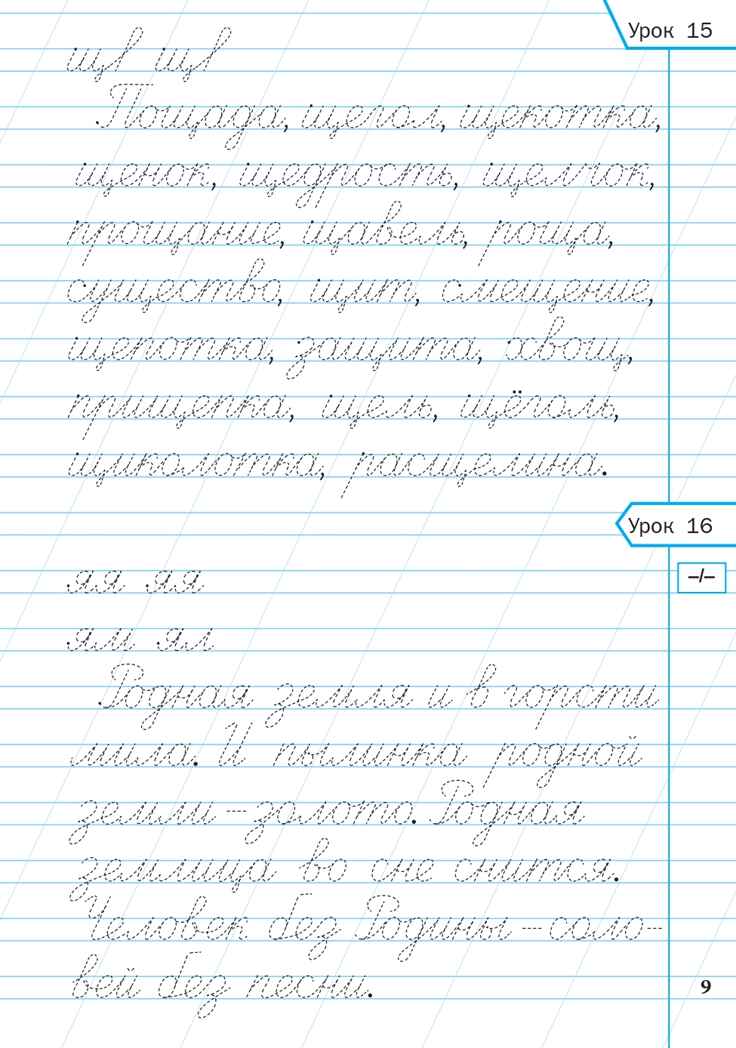 Урок 15
щв щв
Пощада, щегол, щепотка,
щенок, щедрость, щелчок,
прощание, щавель, роща,
существо, щит, смещение,
щепотка, защита, хвощ,
прищепка, щель, щёголь,
щиколотка, расщелина.
Урок 16
яя яя
–/–
ям ял
Родная земля и в горсти
мила. И пылинка родной
земли – золото. Родная
землица во сне снится.
Человек без Родины – соло-
вей без песни.
9